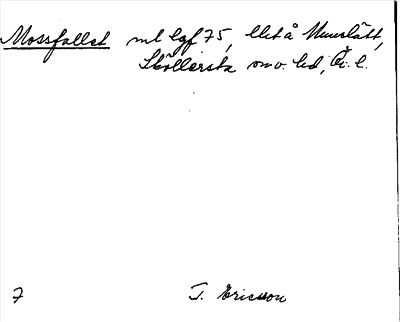 Mossfallet ml lgf 75, llit å Murslätt,
Sköllersta sn o. hd, Ör. l.
7 T. Ericsson